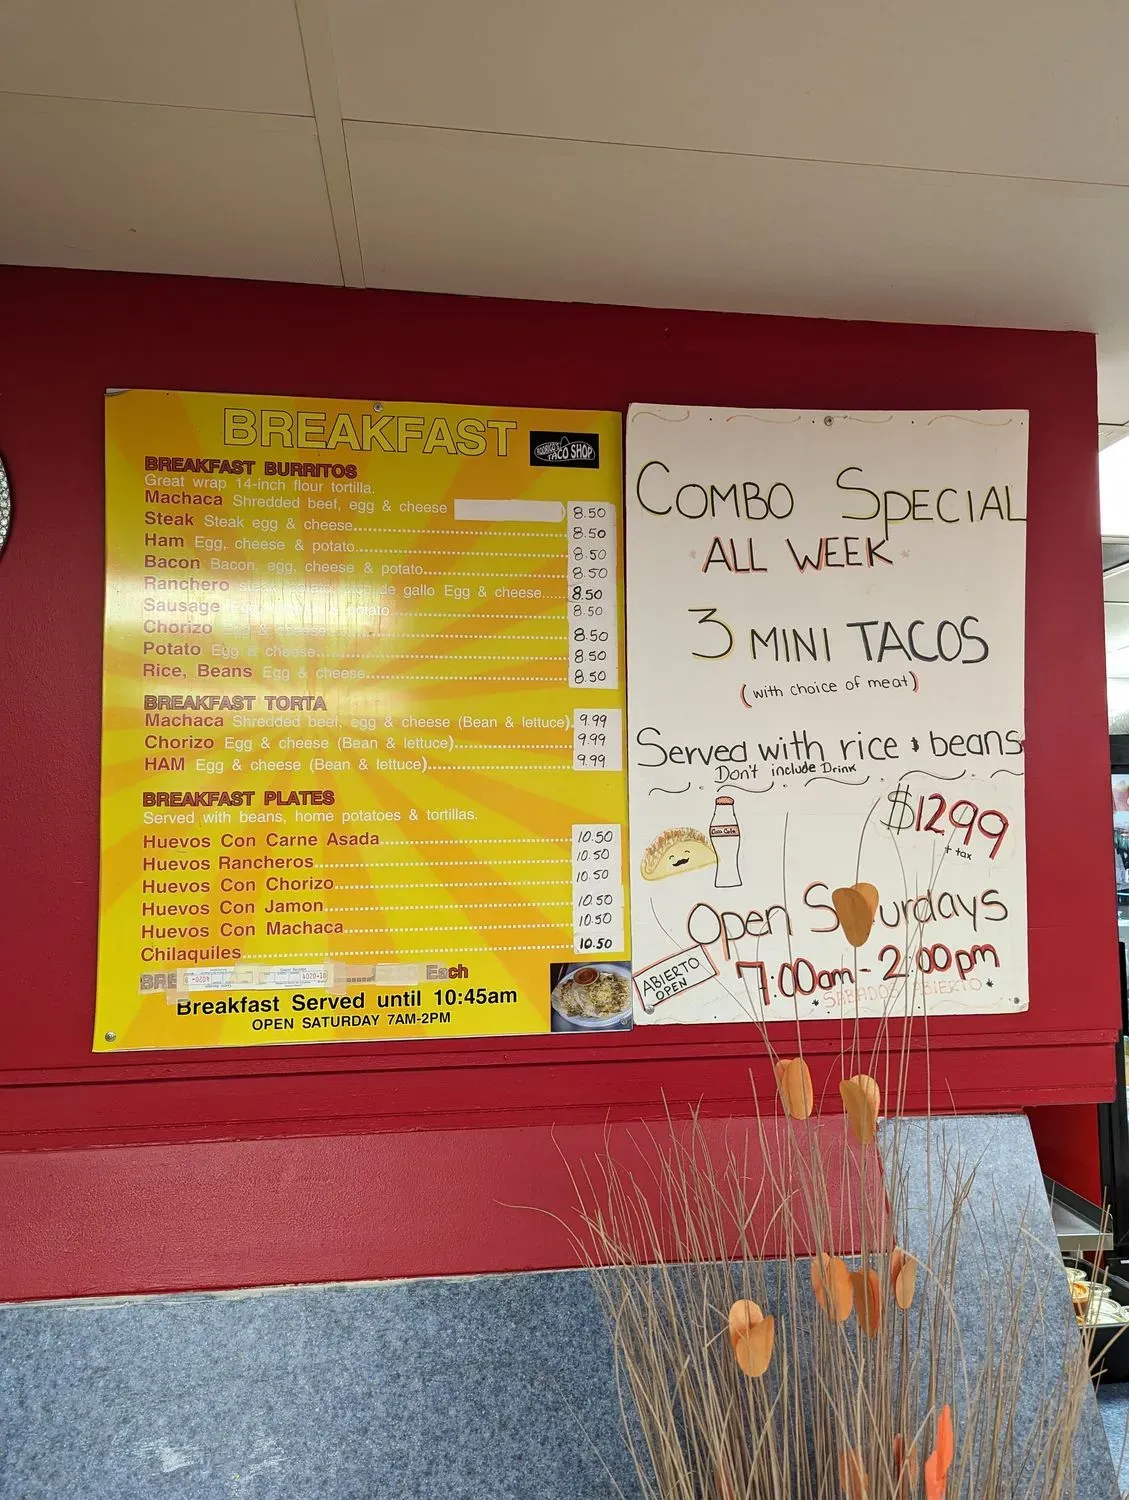 BREAKFAST
RODRIGO'S
TACO SHOP
BREAKFAST BURRITOS
Great wrap 14-inch flour tortilla.
Machaca Shredded beef, egg & cheese 8.50
Steak Steak egg & cheese 8.50
Ham Egg, cheese & potato 8.50
Bacon Bacon, egg, cheese & potato 8.50
Ranchero de gallo Egg & cheese 8.50
Sausage Egg, potato 8.50
Chorizo Egg & cheese 8.50
Potato Egg & cheese 8.50
Rice, Beans Egg & cheese 8.50
BREAKFAST TORTA
Machaca Shredded beef, egg & cheese (Bean & lettuce) 9.99
Chorizo Egg & cheese (Bean & lettuce) 9.99
HAM Egg & cheese (Bean & lettuce) 9.99
BREAKFAST PLATES
Served with beans, home potatoes & tortillas.
Huevos Con Carne Asada 10.50
Huevos Rancheros 10.50
Huevos Con Chorizo 10.50
Huevos Con Jamon 10.50
Huevos Con Machaca 10.50
Chilaquiles 10.50
Each
Breakfast Served until 10:45am
OPEN SATURDAY 7AM-2PM
COMBO SPECIAL
ALL WEEK
3 MINI TACOS
(with choice of meat)
Served with rice & beans
Don't include Drink
Coca Cola
$12.99
+ tax
Open Saturdays
ABIERTO
OPEN
7:00am - 2:00pm
* SABADOS ABIERTO *